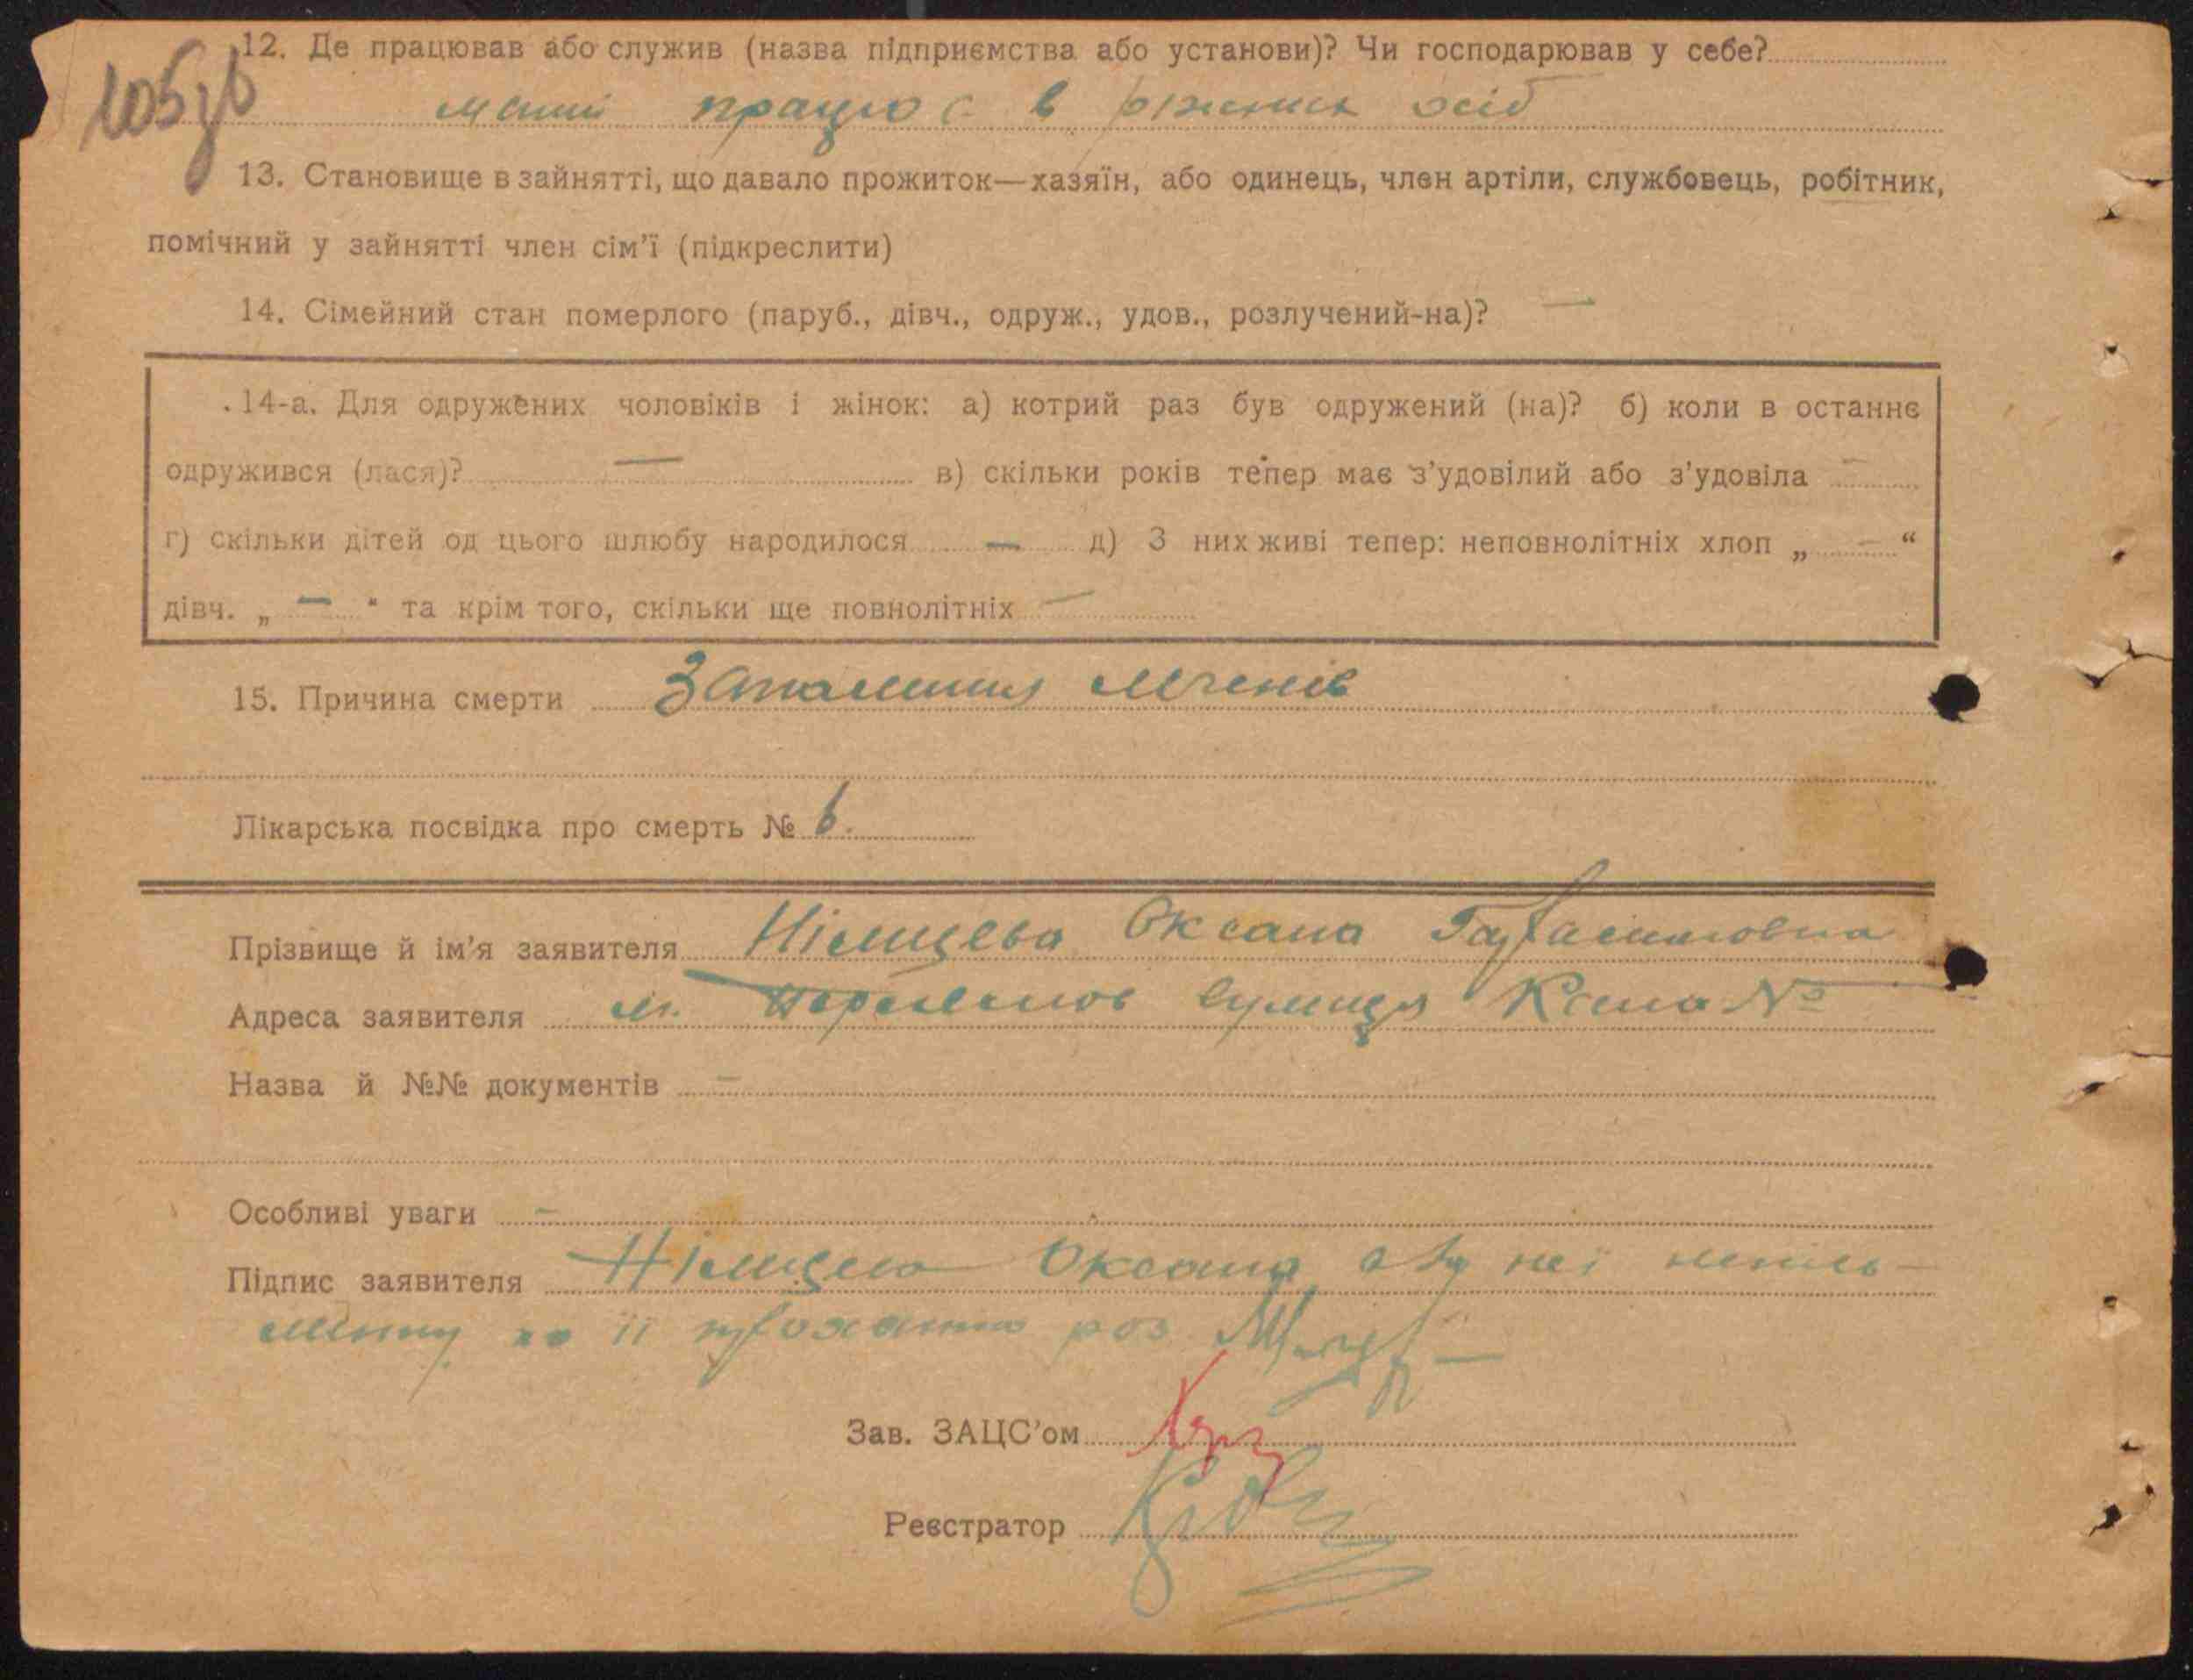 12. Де працював або служив (назва підприємства або установи)? Чи господарював у себе?
мати працює в ріжних осіб
13. Становище в зайнятті, що давало прожиток—хазяїн, або одинець, член артіли, службовець, робітник,
помічний у зайнятті член сім'ї (підкреслити)
14. Сімейний стан померлого (паруб., дівч., одруж., удов., розлучений-на)? —
14-а. Для одружених чоловіків і жінок: а) котрий раз був одружений (на)? б) коли в останнє
одружився (лася)? — в) скільки років тепер має з'удовілий або з'удовіла —
г) скільки дітей од цього шлюбу народилося — д) З них живі тепер: неповнолітніх хлоп „ — “
дівч. „ — “ та крім того, скільки ще повнолітніх —
15. Причина смерти Запалення легенів
Лікарська посвідка про смерть № 6.
Прізвище й ім'я заявителя Німцева Оксана
Адреса заявителя м. вулиця №
Назва й №№ документів —
Особливі уваги —
Підпис заявителя Оксана а за неї непись-
менну по її проханню роз.
Зав. ЗАЦС'ом
Реєстратор